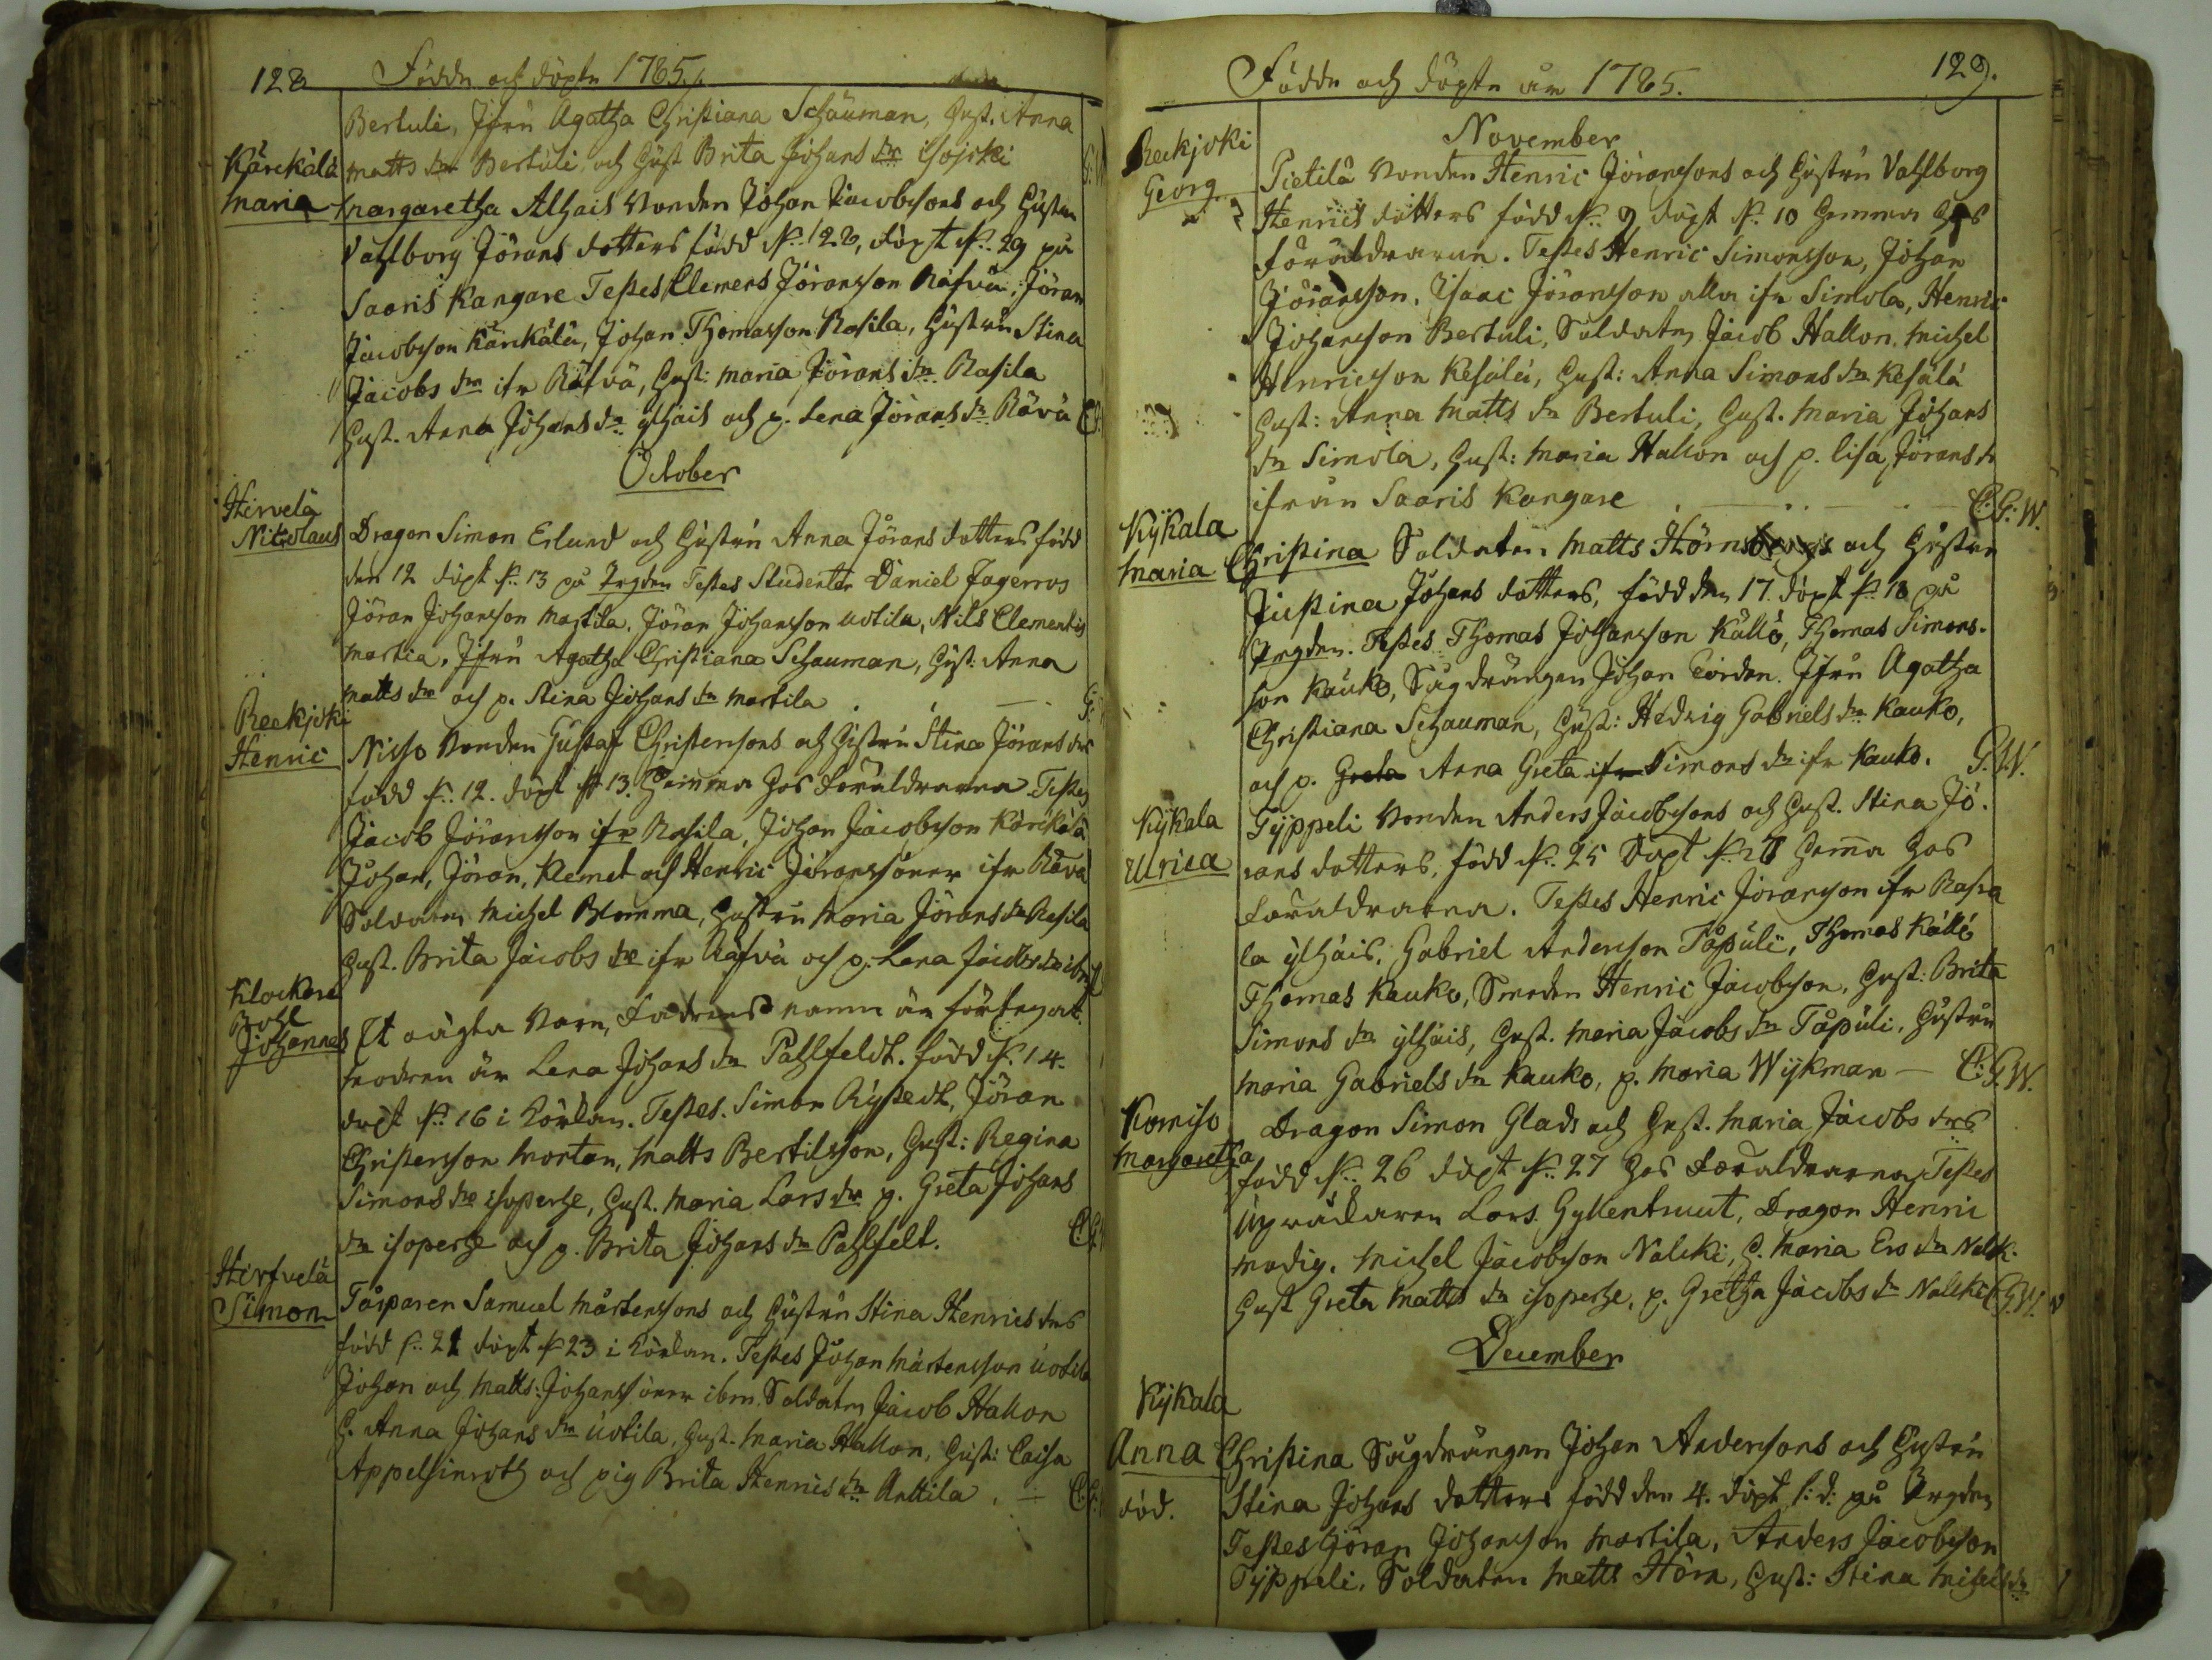 128 Födde och döpte 1785.
Bertuli, Jfru Agatha Christiana Schauman, hust. Anna
Matts dr Bertuli och hust Brita Johans dr Isojoki
Kärckälä
Maria Margaretha Alhais bonden Johan Jacobsons och hustru
Vahlborg Jörans dotters född d. 28, döpt d. 29 på
Saaris Kangare Testes Clemens Jöransson Räfvä, Jöran
Jacobsson Kärckälä, Johan Thomasson Rasila, hustru Stina
Jacobs dr ifr Räfvä, hust: Maria Jörans dr Rasila
hust. Anna Johans dr ylhäis och p. Lena Jörans dr Rävä
October
Hirvelä
Nicolaus Dragon Simon Erlund och hustru Anna Jörans dotters född
den 12 döpt d. 13 på Prgden Testes Studenten Daniel Fagerroos
Jöran Johansson Martila, Jöran Johansson Uotila, Nils Clementis
Martia, Jfru Agatha Christiana Schauman, hust: Anna
Matts dr och p. Stina Johans dr Martila
Reckjoki
Henric Nisso bonden Gustaf Christersons och hustru Stina Jörans drs
född d. 12. döpt d 13. hemma hos föräldrarna Testes
Jacob Jöransson ifr Rasila, Johan Jacobsson Kärckälä
Johan, Jöran, Klemet och Henric Jöranssöner ifr Rävä
Soldaten Michel Blomma, hustru Maria Jörans dr Rasila
hust. Brita Jacobs dr ifr Räfvä och p. Lena Jacobs dr ibm
Klockare
Bohl
Johannes Et oägta barn, fadrens namn är förtegat.
modren är Lena Johans dr Pahlfeldt. född d. 14.
döpt d. 16 i kyrkan. Testes. Simon Rystedt, Jöran
Christersson Mortan, Matts Bertilsson, hust: Regina
Simons dr Isoperhe, hust. Maria Lars dr p. Greta Johans
dr isoperhe och p. Brita Johans dr Pahlfelt.
Hirfvelä
Simon Torparen Samuel Mårtenssons och hustru Stina Henrics drs
född d. 21 döpt d 23 i kyrkan. Testes Johan Mårtensson Uotila
Johan och Matts Johanssöner ibm. Soldaten Jacob Hallon
h. Anna Johans dr Uotila, hust. Maria Hallon, hust: Caisa
Appelsinroth och pig Brita Henrics dr Anttila
Födde och döpte år 1785. 129.
November
Reckjoki
Georg Pietilä bonden Henric Jöransons och hustru Vahlborg
Henrics dotters född d. 9 döpt d. 10 hemma hos
föräldrarne. Testes Henric Simonsson, Johan
Jöransson, Isaac Jöransson alla ifr Simola, Henric
Johansson Bertuli, Soldaten Jacob Hallon, Michel
Henricsson Kesälä, hust: Anna Simons dr Kesälä
hust: Anna Matts dr Bertuli, hust. Maria Johans
dr Simola, hust: Maria Hallon och p. Lisa Jörans dr
ifrån Saaris Kangare C.G.W.
Kykala
Maria Christina Soldaten Matts Hörns och hustru
Justina Johans dotters, född den 17. döpt d. 18 på
Prgden. Testes Thomas Johansson Källö, Thomas Simons-
son Kauko, Sågdrängen Johan Torden. Jfru Agatha
Christiana Schauman, hust: Hedvig Gabriels dr Kauko,
och p. Greta Anna Greta ifr Simons dr ifr Kauko. G.W.
Kykala
Ulrica Typpeli bonden Anders Jacobsons och hust. Stina Jö-
rans dotters, född d. 25 döpt d. 27 hemma hos
föräldrarna. Testes Henric Jöransson ifr Rasi
la ylhäis, Gabriel Andersson Tåpuli, Thomas Källö
Thomas Kauko, Smeden Henric Jacobsson, hust: Brita
Simons dr ylhäis, hust. Maria Jacobs dr Tåpuli, hustru
Maria Gabriels dr Kauko, p. Maria Wykman C.G.W.
Komiso
Margaretha Dragon Simon Glads och hust. Maria Jacobs drs
född d. 26 döpt d. 27 hos föräldrarna, Testes
Upridaren Lars Gyllentruut, Dragon Henric
Modig. Michel Jacobsson Nalcki, h. Maria Ers dr Nalk.
hust Greta Matts dr isoperhe, p. Gretha Jacobs dr Nalcki C.G.W.
December
Kykala
Anna Christina Sågdrängen Johan Andersons och hustru
död. Stina Johans dotters född den 4. döpt s: d: på Prgden
Testes Jöran Johansson Martila, Anders Jacobsson
Typpeli, Soldaten Matts Hörn, hust: Stina Michels dr